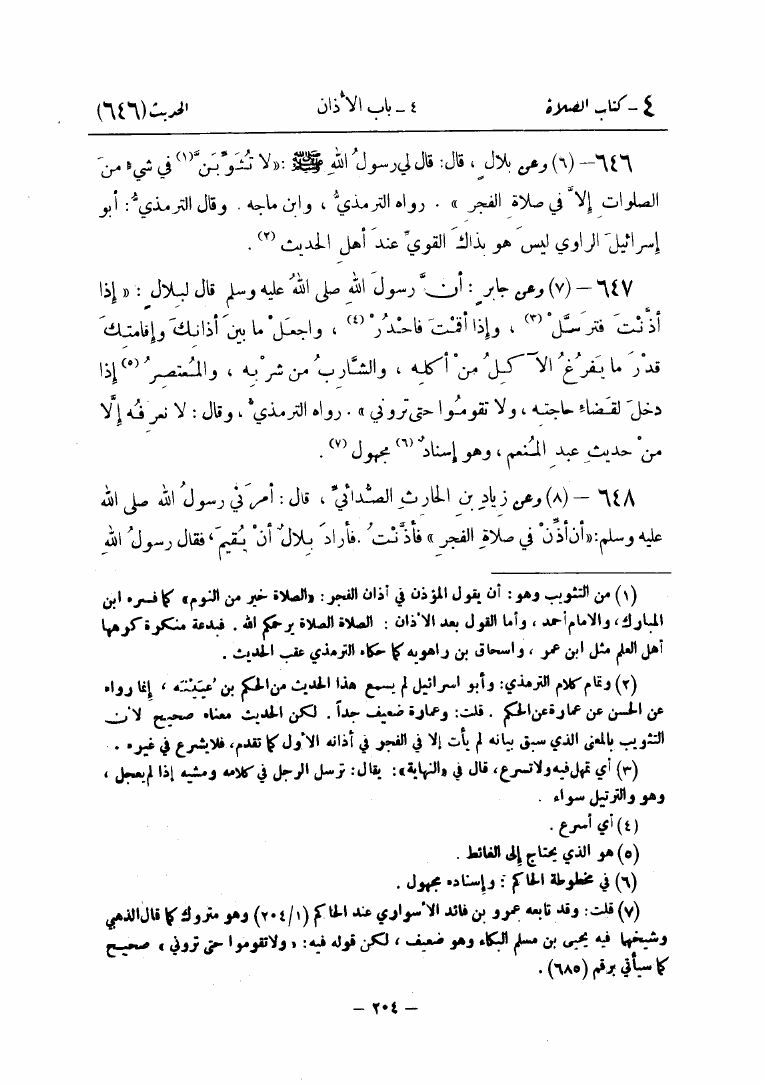 ٤ - كتاب الصلاة ٤ - باب الأذان الحديث (٦٤٦)
٦٤٦ - (٦) وعن بلالٍ ، قال: قال لي رسولُ اللهِ ﷺ :«لا تُثَوِّبَنَّ(١) في شيءٍ منَ
الصلواتِ إلاَّ في صلاةِ الفجرِ » . رواه الترمذيُّ ، وابن ماجه . وقال الترمذيُّ: أبو
إسرائيلَ الراوي ليسَ هو بذاكَ القويِّ عندَ أهلِ الحديث (٢) .
٦٤٧ - (٧) وعن جابرٍ : أنَّ رسولَ اللهِ صلى اللهُ عليه وسلم قال لبلالٍ : « إذا
أذَّنْتَ فترسَّلْ (٣) ، وإذا أقمْتَ فاحْدُرْ (٤) ، واجعلْ ما بينَ أذانِكَ وإقامتِكَ
قدْرَ ما يَفرُغُ الآكِلُ منْ أكلِه ، والشَّاربُ من شربِه ، والمُعتصِرُ (٥) إذا
دخلَ لقَضاءِ حاجتِه ، ولا تقومُوا حتى تروني » . رواه الترمذيُّ ، وقال : لا نعرِفُه إلَّا
منْ حديثِ عبدِ المُنعم ، وهو إسنادٌ (٦) مجهول (٧) .
٦٤٨ - (٨) وعن زيادِ بنِ الحارثِ الصُّدائيِّ ، قال : أمرَني رسولُ الله صلى الله
عليه وسلم:«أن أذِّنْ في صلاةِ الفجرِ » فأذَّنْتُ .فأرادَ بلالٌ أنْ يُقيمَ ، فقال رسولُ اللهِ
(١) من التثويب وهو : أن يقول المؤذن في أذان الفجر : «الصلاة خير من النوم» كما فسره ابن
المبارك، والامام أحمد ، وأما القول بعد الأذان : الصلاة الصلاة يرحمكم الله . فبدعة منكرة كرهها
أهل العلم مثل ابن عمر ، واسحاق بن راهويه كما حكاه الترمذي عقب الحديث .
(٢) وتمام كلام الترمذي: وأبو اسرائيل لم يسمع هذا الحديث من الحكم بن عُيَيْنَة ، إنما رواه
عن الحسن عن عمارة عن الحكم . قلت: وعمارة ضعيف جداً . لكن الحديث معناه صحيح لأن
التثويب بالمعنى الذي سبق بيانه لم يأت إلا في الفجر في أذانه الأول كما تقدم، فلا يشرع في غيره .
(٣) أي تمهل فيه ولا تسرع، قال في «النهاية»: يقال: ترسل الرجل في كلامه ومشيه إذا لم يعجل ،
وهو والترتيل سواء .
(٤) أي أسرع .
(٥) هو الذي يحتاج إلى الغائط .
(٦) في مخطوطة الحاكم : وإسناده مجهول .
(٧) قلت: وقد تابعه عمرو بن فائد الأسواري عند الحاكم (٢٠٤/١) وهو متروك كما قال الذهبي
وشيخها فيه يحيى بن مسلم البكاء وهو ضعيف ، لكن قوله فيه: « ولا تقوموا حتى تروني » صحيح
كما سيأتي برقم (٦٨٥) .
- ٢٠٤ -